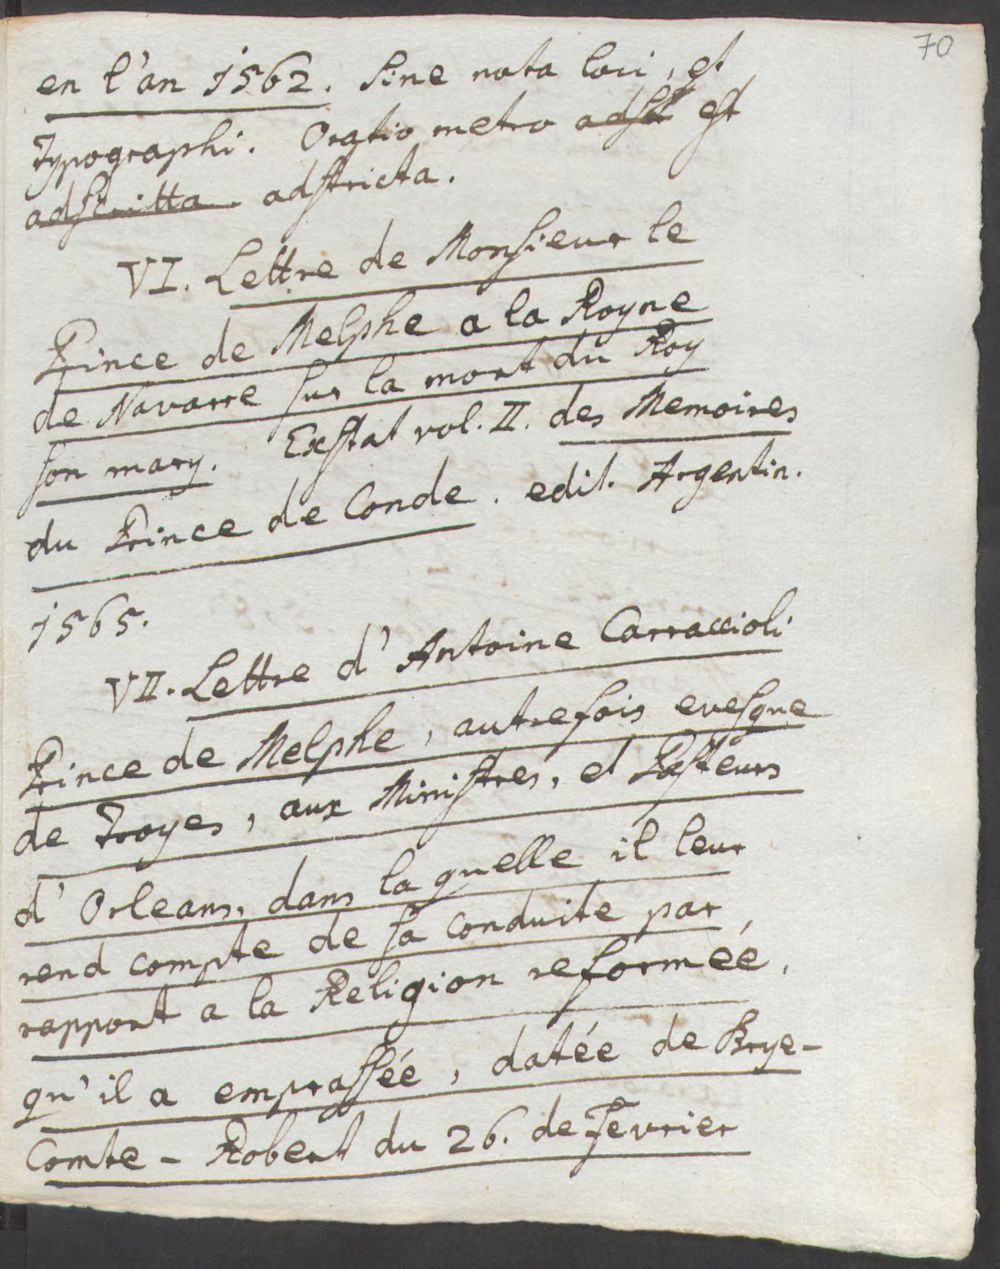 70
en l'an 1562. Sine nota loci, et
Typographi. Oratio metro adst est
adscritta. adstricta.
VI. Lettre de Monsieur le
Prince de Melphe a la Royne
de Navarre sur la mort du Roy
son mary. Exstat vol. II. des Memoires
du Prince de Conde. edit. Argentin.
1565.
VII. Lettre d'Antoine Carraccioli
Prince de Melphe, autrefois evesque
de Troyes, aux Ministres, et Pasteurs
d'Orleans, dans la quelle il leur
rend compte de sa conduite par
rapport a la Religion reformée,
qu'il a emprassée, datée de Brye-
Comte-Robert du 26. de Fevrier